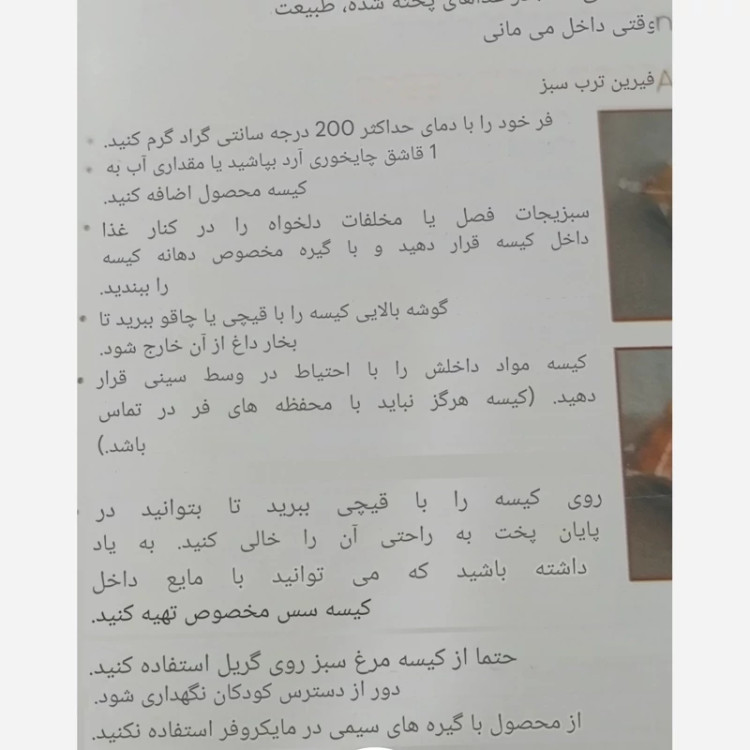 پخته شده، طبیعت
وقتی داخل می مانی
فیرین ترب سبز
فر خود را با دمای حداکثر 200 درجه سانتی گراد گرم کنید.
1 قاشق چایخوری آرد بپاشید یا مقداری آب به
کیسه محصول اضافه کنید.
سبزیجات فصل یا مخلفات دلخواه را در کنار غذا
داخل کیسه قرار دهید و با گیره مخصوص دهانه کیسه
را ببندید.
گوشه بالایی کیسه را با قیچی یا چاقو ببرید تا
بخار داغ از آن خارج شود.
کیسه مواد داخلش را با احتیاط در وسط سینی قرار
دهید. (کیسه هرگز نباید با محفظه های فر در تماس
باشد.)
روی کیسه را با قیچی ببرید تا بتوانید در
پایان پخت به راحتی آن را خالی کنید. به یاد
داشته باشید که می توانید با مایع داخل
کیسه سس مخصوص تهیه کنید.
حتما از کیسه مرغ سبز روی گریل استفاده کنید.
دور از دسترس کودکان نگهداری شود.
از محصول با گیره های سیمی در مایکروفر استفاده نکنید.